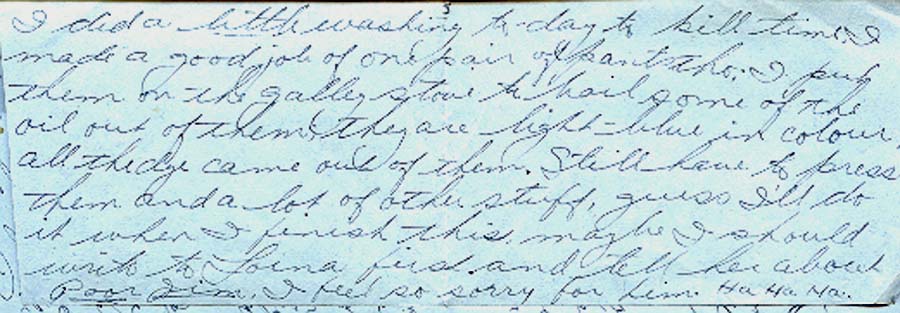 I did a little washing to-day to kill time, I
made a good job of one pair of pants tho; I put
them on the galley stove to boil some of the
oil out of them, they are light-blue in colour,
all the dye came out of them. Still have to press
them and a lot of other stuff, guess I'll do
it when I finish this, maybe I should
write to Lorna first and tell her about
Poor Jim, I feel so sorry for him. Ha Ha Ha.